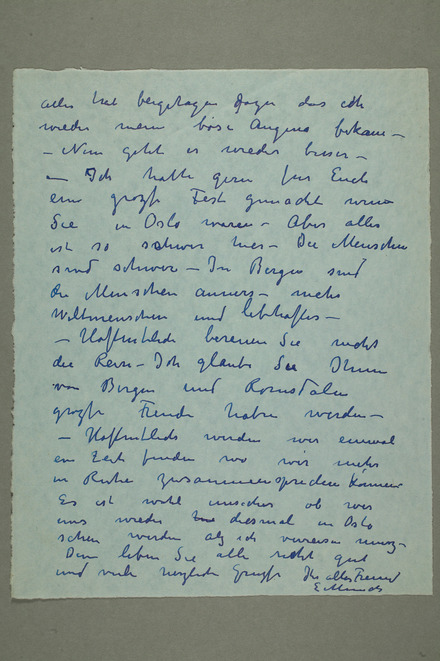 alles hat beigetragen dazu das ich
wieder meine böse Augina bekam –
– Nun geht es wieder besser –
– Ich hatte gern für Euch
eine große Fest gemacht wenn
Sie in Oslo waren – Aber alles
ist so schwer hier – Die Menschen
sind schwer – In Bergen sind
die Menschen anners – mehr
Weltmenschen und lebhafter –
– Hoffentlich bereuen Sie nicht
die Reise – Ich glaube Sie
von Bergen und Romsdalen
große Freude haben werden –
– Hoffentlich werden wir einmal
ein Zeit finden wo wir mehr
in Ruhe zusammensprechen können
Es ist wohl unsicher ob wir
uns wieder diesmal in Oslo
sehen werden als ich verreisen muss –
Dan leben Sie alle recht gut
und viele herzliche Grüße Ihr alter Freund
E. Munch